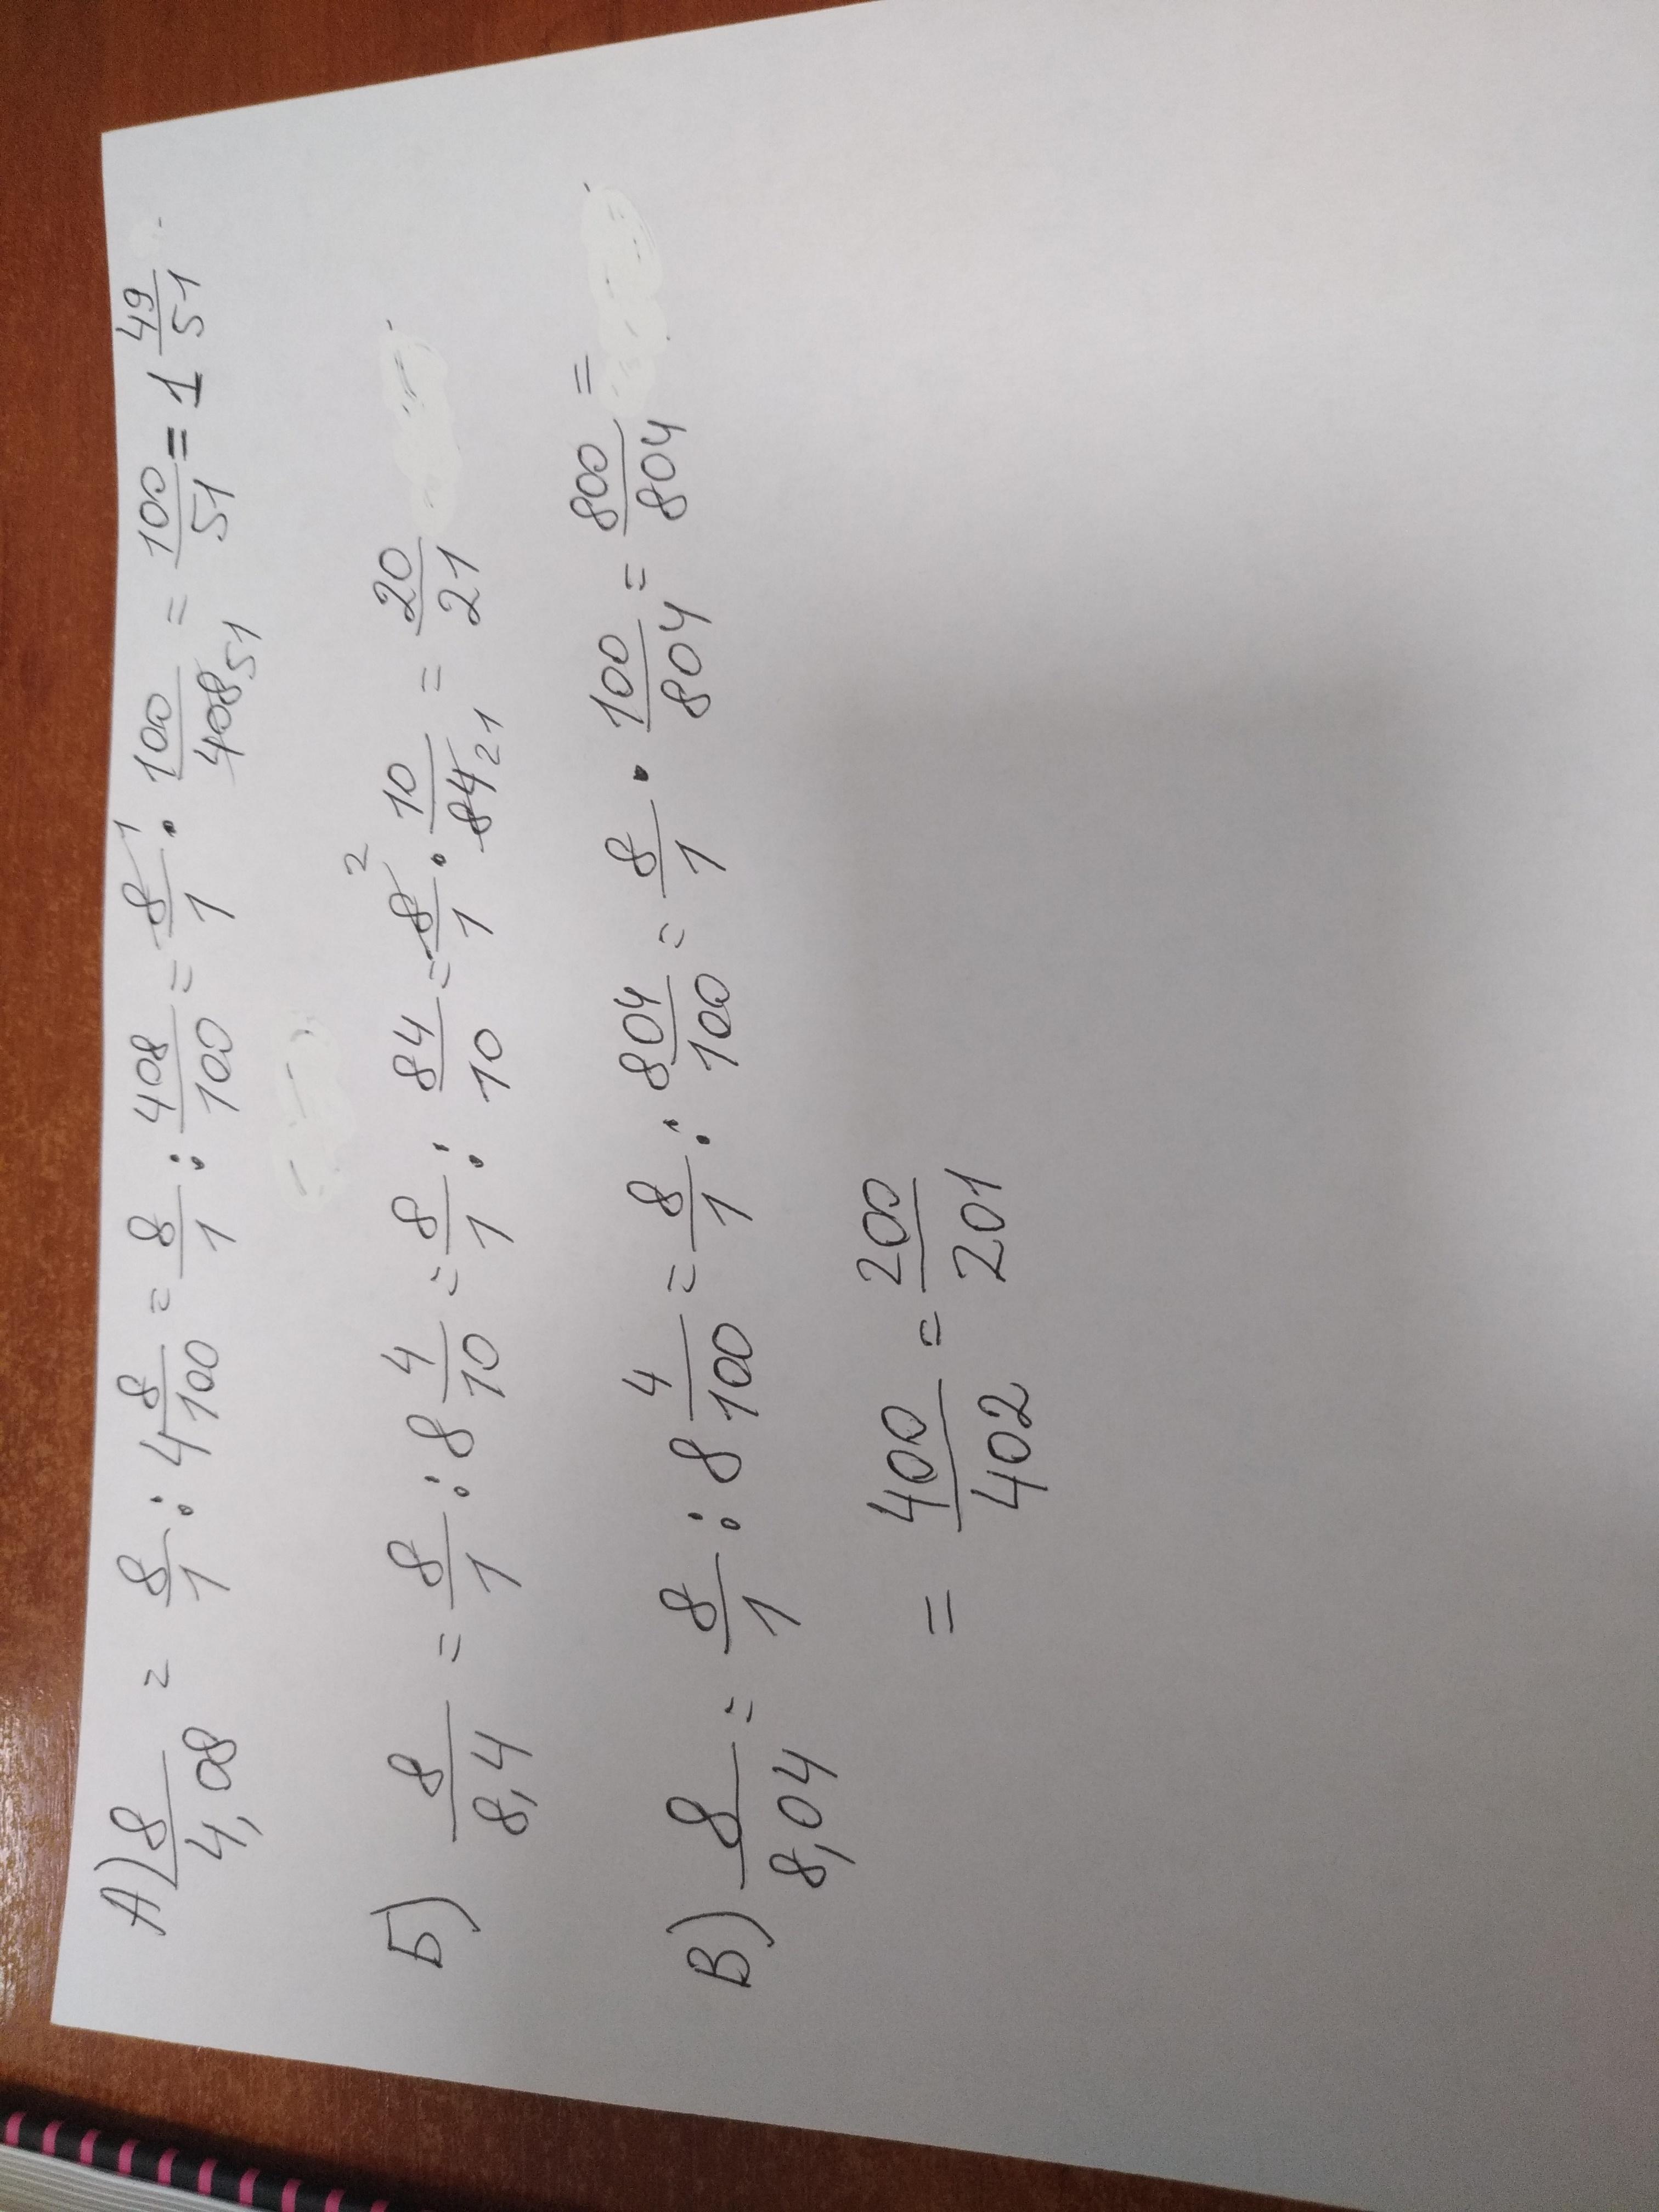 А) 8/4,08 = 8/1 : 4 8/100 = 8/1 : 408/100 = 8/1 1 · 100/408 51 = 100/51 = 1 49/51
Б) 8/8,4 = 8/1 : 8 4/10 = 8/1 : 84/10 = 8/1 2 · 10/84 21 = 20/21
В) 8/8,04 = 8/1 : 8 4/100 = 8/1 : 804/100 = 8/1 · 100/804 = 800/804 =
= 400/402 = 200/201